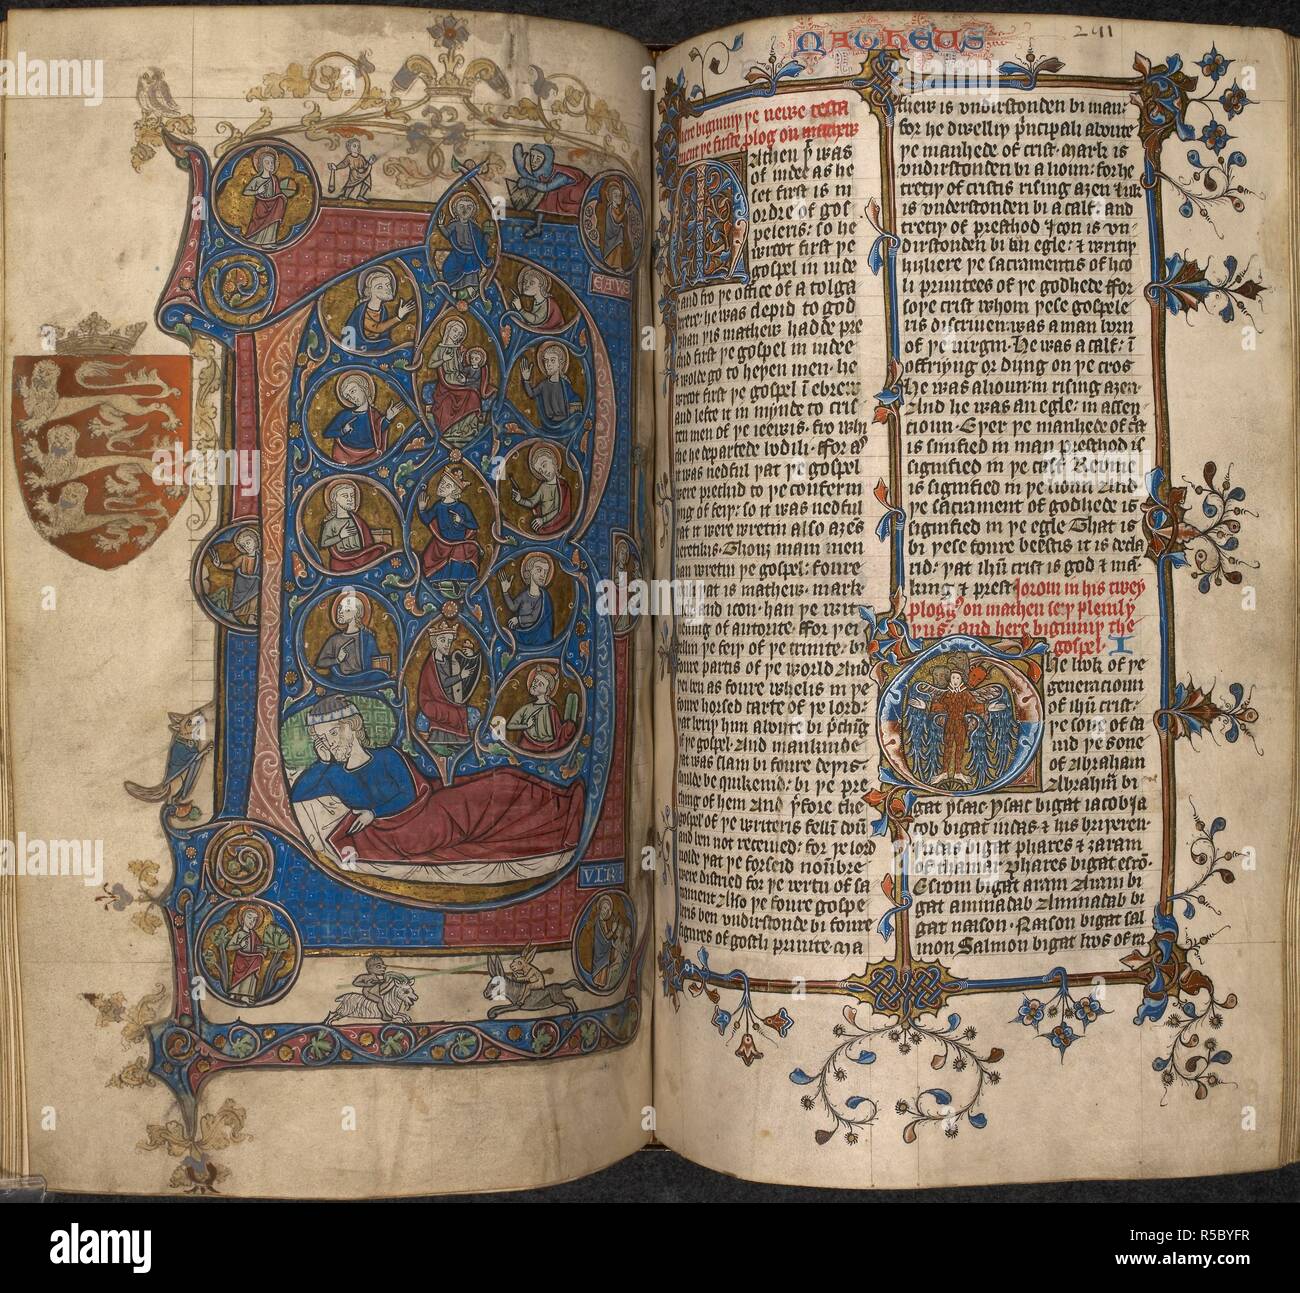 EATVS
VIR
Matheus
241
here biginniþ ye newe testa
ment ye firste plog on mathew
Mathen yt was
of iudee as he
set first is in
ordre of gos
peleris: so he
wroot first ye
gospel in iude
and fro ye office of a tolga
derer: he was clepid to god
whan yis mathew hadde pre
chid first ye gospel in iudee
& wolde go to heyen men. he
wroot first ye gospel i ebrew
and lefte it in mynde to cris
ten men of ye iewis. fro whi
che he departede bodili. ffor as
it was nedful yat ye gospel
were prechid to ye conferm
yng of feiy: so it was nedful
yat it were writin also azens
heretikis. Thouz many men
han writin ye gospel: foure
oonli yat is mathew. mark
luk and ioon. han ye wit
nessing of autorite. ffor yei
tellen ye feiy of ye trinite. bi
foure partis of ye world And
yei ben as foure whelis in ye
foure horsed carte of ye lord:
yat beriy him aboute bi prching
of ye gospel. And mankinde
yat was slain bi foure deyis:
shulde be quikenid: bi ye pre
ching of hem And yfore the
gospel of ye writeris fellen doun
and ben not receiued: for ye lord
nolde yat ye forseid noumbre
were distried for ye vertu of sa
crament Also ye foure gospe
leris ben vndirstonde bi foure
figures of gostli priuite. ma
thew is vndirstonden bi man:
for he dwelliy principali aboute
ye manhede of crist. mark is
vndirstonden bi a lioun: for he
tretiy of cristis rising azen luk
is vnderstonden bi a calf: and
tretiy of presthod Joon is vn-
dirstonden bi an egle: & writiy
hizliere ye sacramentis of hoo
li priuitees of ye godhede ffor
soye crist whom yese gospele
ris discriuen: was a man born
of ye virgin. He was a calf: i
offriyng or diyng on ye cros
He was a lioun: in rising azen.
And he was an egle: in ascen
cioun. Eyer ye manhede of crist
is signified in man presthod is
signified in ye calf. Rewme
is signified in ye lioun And
ye sacrament of godhede is
signified in ye egle That is
bi yese foure beestis it is decla
rid: yat ihu crist is god & ma
king & prest Jerom in his twey
plogges on mathen sey plenly
yus: and here biginniy the
gospel. I
The book of ye
generacioun
of ihu crist:
ye sone of da
uid ye sone
of Abraham
Abraham bi
gat ysaac. ysaac bigat iacob. ja
cob bigat iudas & his briyeren.
Judas bigat phares & zaram
of thamar phares bigat esrom.
Esrom bigat aram Aram bi
gat aminadab Aminadab bi
gat naason. Naason bigat sal
mon Salmon bigat boos of ra
alamy
www.alamy.com
Image ID: R5BYFR